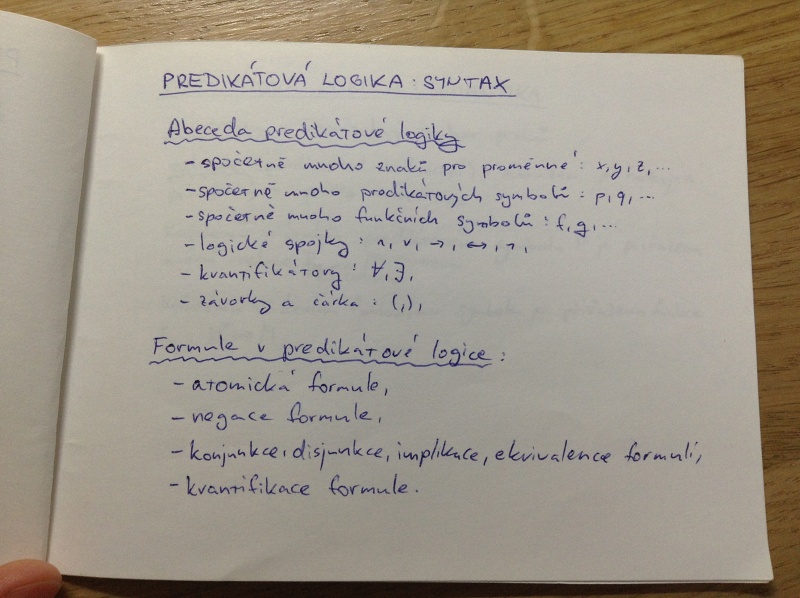 PREDIKÁTOVÁ LOGIKA : SYNTAX
Abeceda predikátové logiky
- spočetně mnoho znaků pro proměnné : x, y, z, ...
- spočetně mnoho predikátových symbolů : p, q, ...
- spočetně mnoho funkčních symbolů : f, g, ...
- logické spojky : ∧, ∨, →, ↔, ¬,
- kvantifikátory : ∀, ∃,
- závorky a čárka : (, ),
Formule v predikátové logice :
- atomická formule,
- negace formule,
- konjunkce, disjunkce, implikace, ekvivalence formulí,
- kvantifikace formule.